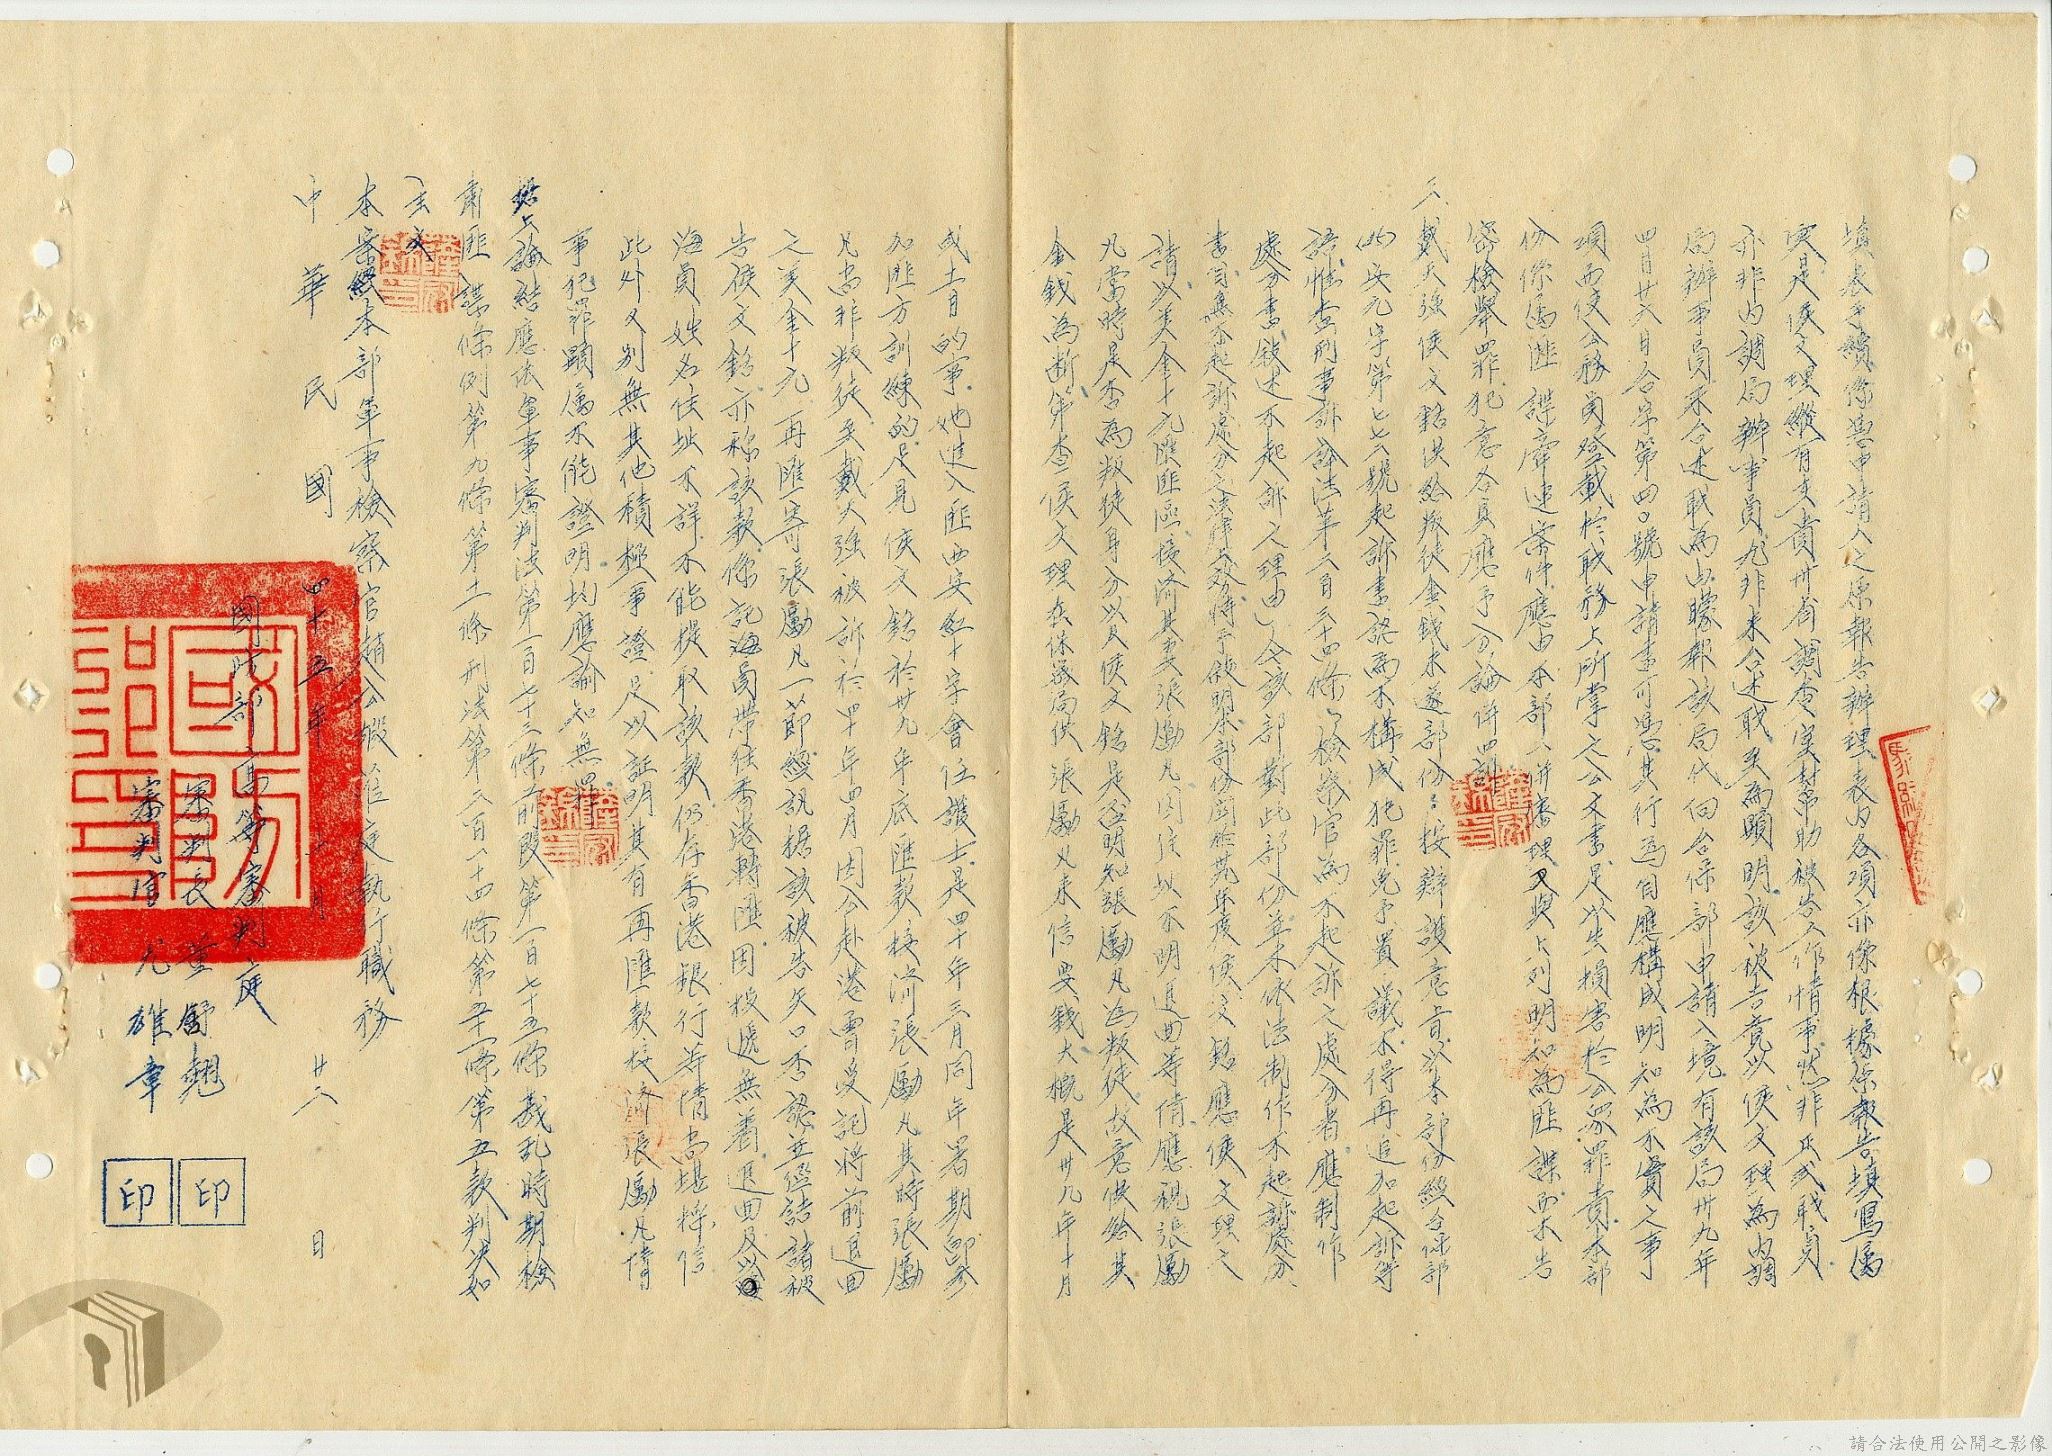 填表手續係憑申請人之原報告辦理表內各項亦係根據原報告填寫屬
實是侯文理縱有支責卅省調查室幫助被告工作情事然非正式職員
亦非內調局辦事員尤非來台述職至為顯明該被告竟以侯文理為內調
局辦事員來台述職為由矇報該局代向台保部申請入境有該局卅九年
四月廿六日合字第四〇號申請書可憑其行為自應構成明知為不實之事
項而使公務員登載於職務上所掌之公文書足以生損害於公眾罪責本部
份係屬匪諜牽連案件應由本部一併審理又與上列明知為匪諜而不告
密檢舉罪犯意各具應予分論併罰
三、戴天強侯文鋙供給叛徒金錢未遂部份：按辯護意旨以本部份經台保部
安元字第七七號起訴書認為不構成犯罪免予置議不得再追加起訴等
語惟查刑事訴訟法第二百三十四條「檢察官為不起訴之處分者應制作
處分書敘述不起訴之理由」今該部對此部份並未依法制作不起訴處分
書自無不起訴處分之法律效力
請以美金十元匯匪區接濟其妻張勵凡因住址不明退回等情應視張勵
凡當時是否為叛徒身分以及侯文鋙是否明知張勵凡為叛徒故意供給其
金錢為斷第查侯文理在保密局供張勵凡來信要錢大概是卅九年十月
或十一月的事她進入匪西安紅十字會任護士是四十年三月同年暑期即參
加匪方訓練的足見侯文鋙於卅九年底匯款接濟張勵凡其時張勵
凡尚非叛徒至戴天強被訴於四十年四月因公赴港曾受託將前退回
之美金十元再匯寄張勵凡一節經訊據該被告矢口否認並經詰諸被
告侯文鋙亦稱該款係託海員帶往香港轉匯因投遞無著退回及以
海員姓名住址不詳不能提取該款仍存香港銀行等情尚堪採信
此外又別無其他積極事證足以証明其有再匯款接濟張勵凡情
事犯罪顯屬不能證明均應諭知無罪
據上論結應依軍事審判法第一百七十三條前段第一百七十五條戡乱時期檢
肅匪諜條例第九條第十一條刑法第二百一十四條第五十一條第五款判決如
主文
本案經本部軍事檢察官趙公嘏蒞庭執行職務
中華民國四十五年十一月廿八日
國防部高等審判庭
審判長 董舒翹 印
審判官 尤雄章 印
國防部印
請合法使用公開之影像